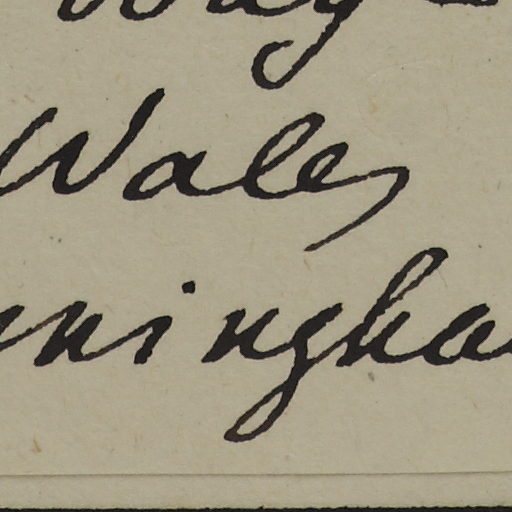 Wales
ningha